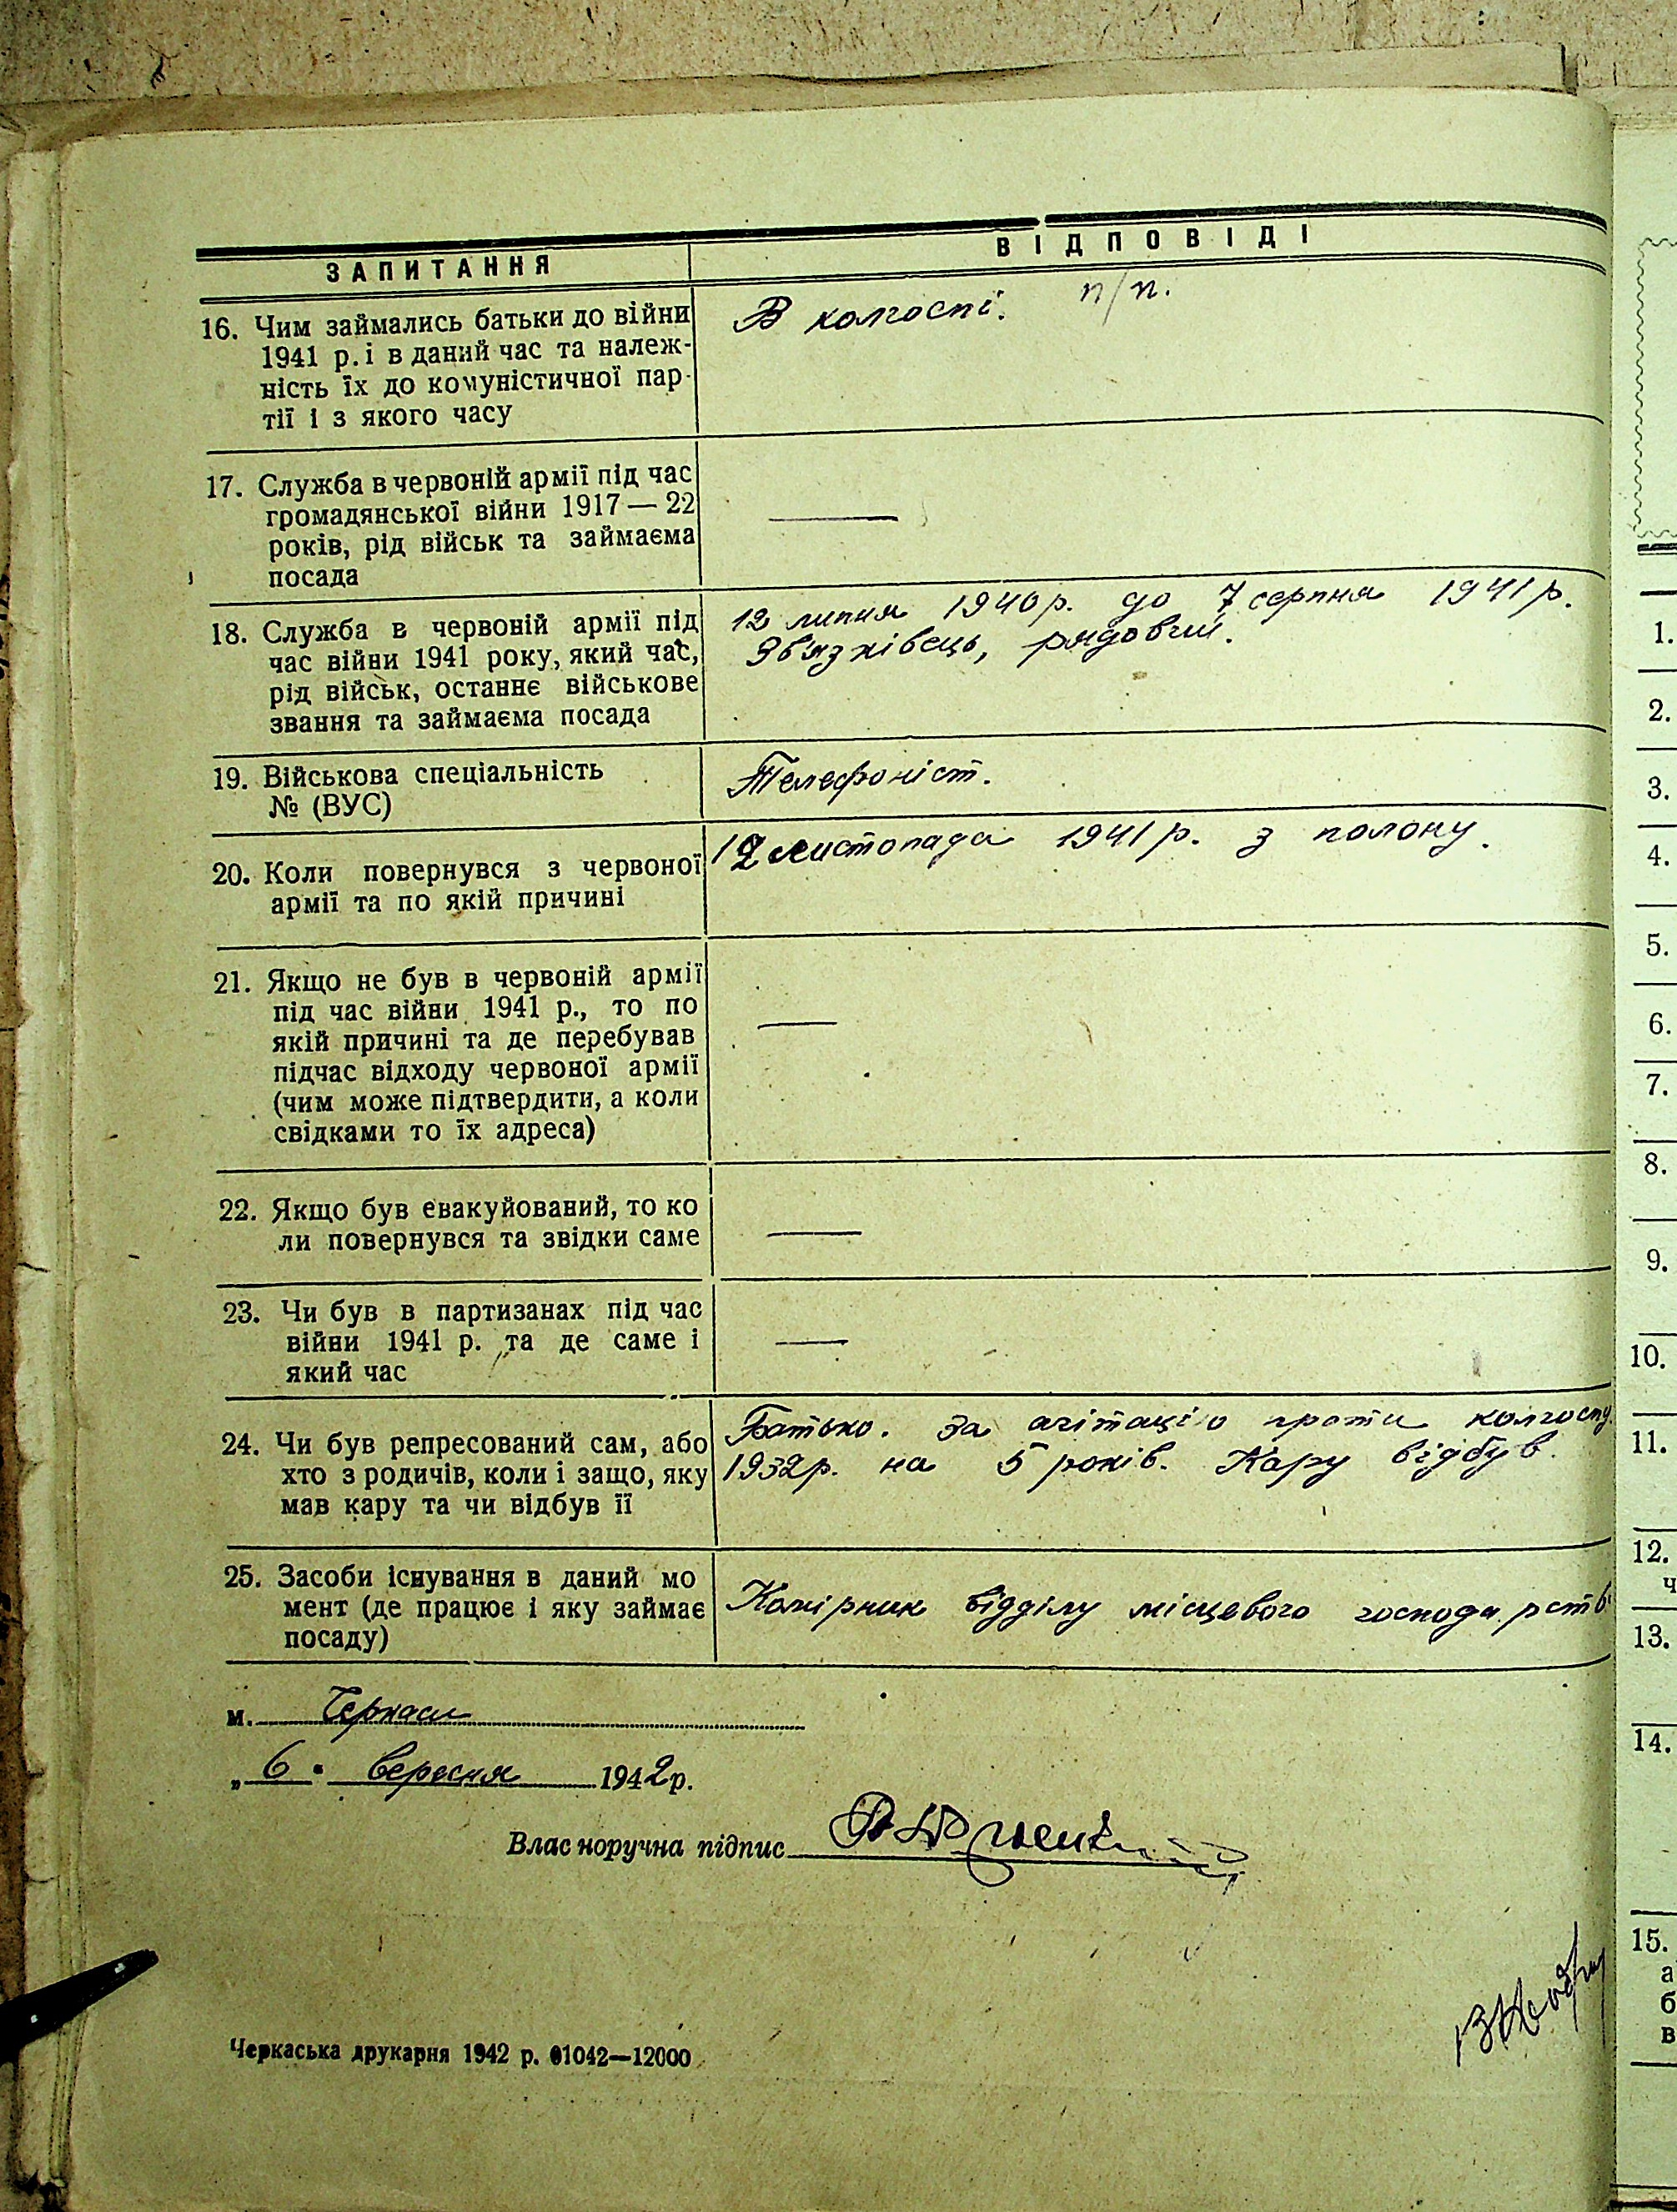 ЗАПИТАННЯ
ВІДПОВІДІ
16. Чим займались батьки до війни
1941 р. і в даний час та належ-
ність їх до комуністичної пар-
тії і з якого часу
В колгоспі. п/п.
17. Служба в червоній армії під час
громадянської війни 1917—22
років, рід військ та займаєма
посада
—
18. Служба в червоній армії під
час війни 1941 року, який час,
рід військ, останнє військове
звання та займаєма посада
12 липня 1940 р. до 7 серпня 1941 р.
Зв'язківець, рядовий.
19. Військова спеціальність
№ (ВУС)
Телефоніст.
20. Коли повернувся з червоної
армії та по якій причині
12 листопада 1941 р. з полону.
21. Якщо не був в червоній армії
під час війни 1941 р., то по
якій причині та де перебував
підчас відходу червоної армії
(чим може підтвердити, а коли
свідками то їх адреса)
—
22. Якщо був евакуйований, то ко
ли повернувся та звідки саме
—
23. Чи був в партизанах під час
війни 1941 р. та де саме і
який час
—
24. Чи був репресований сам, або
хто з родичів, коли і защо, яку
мав кару та чи відбув її
Батько. За агітацію проти колгоспу
1932 р. на 5 років. Кару відбув.
25. Засоби існування в даний мо
мент (де працює і яку займає
посаду)
Комірник відділу місцевого господарств
м. Черкаси
„ 6 " вересня 1942 р.
Власноручна підпис
Черкаська друкарня 1942 р. 01042—12000
1.
2.
3.
4.
5.
6.
7.
8.
9.
10.
11.
12.
ч
13.
14.
15.
а
б
в